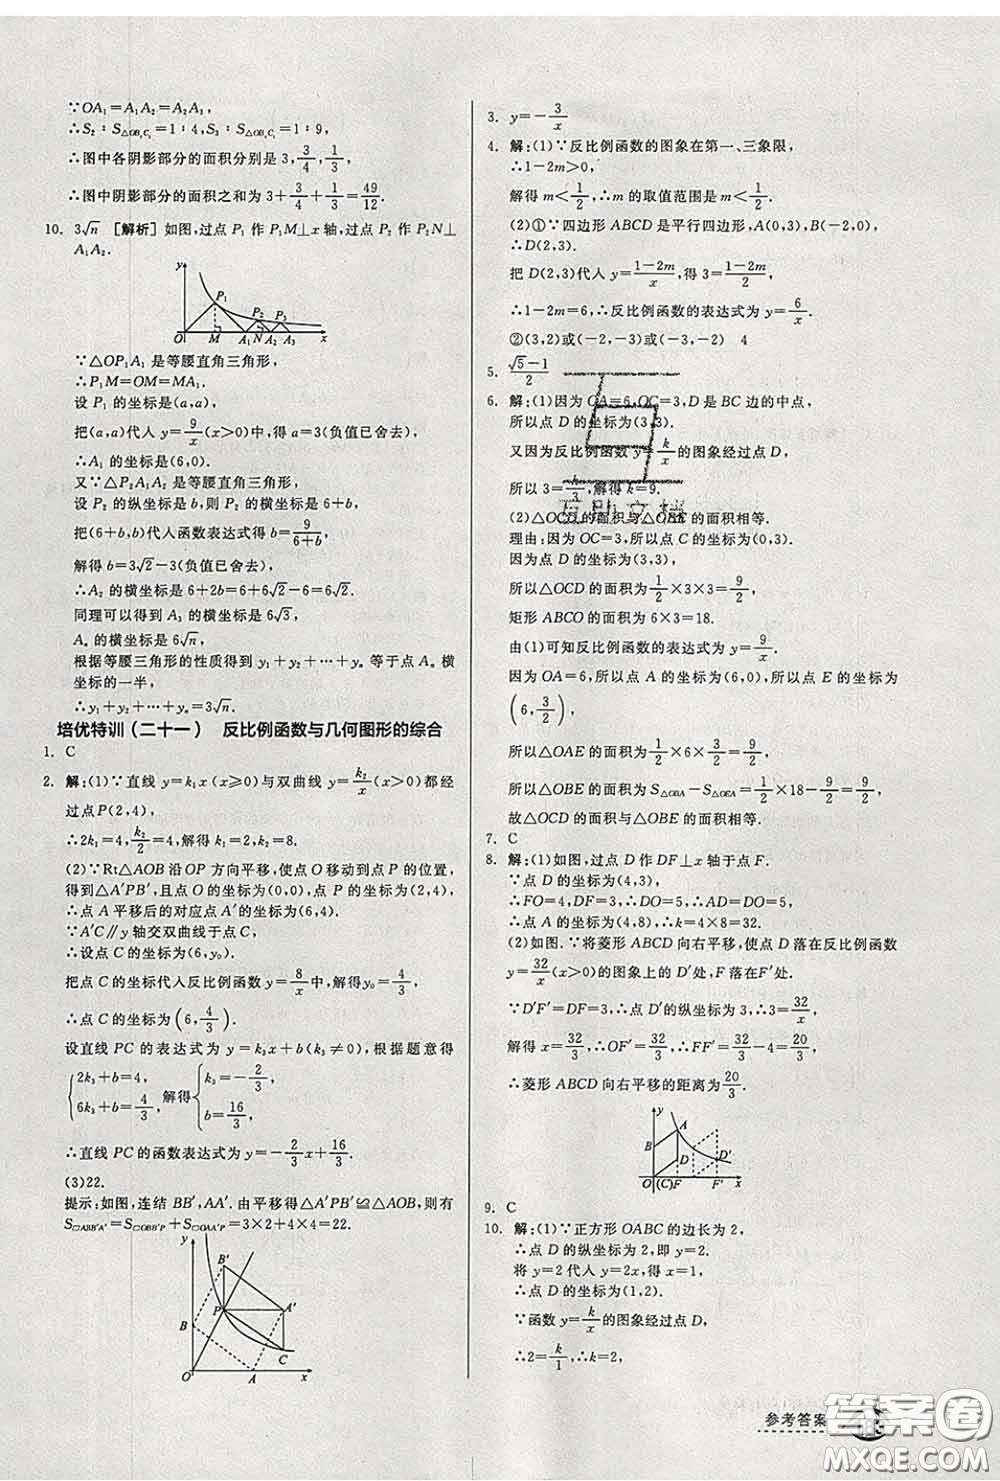 ∵OA₁=A₁A₂=A₂A₃,
∴S₂∶S△OB₂C₂=1∶4,S₃∶S△OB₃C₃=1∶9,
∴图中各阴影部分的面积分别是 3,3/4,1/3,
∴图中阴影部分的面积之和为 3+3/4+1/3=49/12.
10. 3√n [解析] 如图,过点 P₁ 作 P₁M⊥x 轴,过点 P₂ 作 P₂N⊥
A₁A₂.
y
P₁
P₂ P₃
O M A₁ N A₂ A₃ x
∵△OP₁A₁ 是等腰直角三角形,
∴P₁M=OM=MA₁.
设 P₁ 的坐标是(a,a),
把(a,a)代入 y=9/x(x>0)中,得 a=3(负值已舍去),
∴A₁ 的坐标是(6,0).
又∵△P₂A₁A₂ 是等腰直角三角形,
设 P₂ 的纵坐标是 b,则 P₂ 的横坐标是 6+b,
把(6+b,b)代入函数表达式得 b=9/(6+b),
解得 b=3√2-3(负值已舍去),
∴A₂ 的横坐标是 6+2b=6+6√2-6=6√2.
同理可以得到 A₃ 的横坐标是 6√3,
Aₙ 的横坐标是 6√n,
根据等腰三角形的性质得到 y₁+y₂+⋯+yₙ 等于点 Aₙ 横
坐标的一半,
∴y₁+y₂+⋯+yₙ=3√n.
培优特训(二十一) 反比例函数与几何图形的综合
1. C
2. 解:(1)∵直线 y=k₁x(x≥0)与双曲线 y=k₂/x(x>0)都经
过点 P(2,4),
∴2k₁=4,k₂/2=4,解得 k₁=2,k₂=8.
(2)∵Rt△AOB 沿 OP 方向平移,使点 O 移动到点 P 的位置,
得到△A′PB′,且点 O 的坐标为(0,0),点 P 的坐标为(2,4),
∴点 A 平移后的对应点 A′的坐标为(6,4).
∵A′C∥y 轴交双曲线于点 C,
∴设点 C 的坐标为(6,y₀).
把点 C 的坐标代入反比例函数 y=8/x 中,解得 y₀=4/3,
∴点 C 的坐标为(6,4/3).
设直线 PC 的表达式为 y=k₃x+b(k₃≠0),根据题意得
{2k₃+b=4, 6k₃+b=4/3, 解得{k₃=-2/3, b=16/3,
∴直线 PC 的函数表达式为 y=-2/3x+16/3.
(3)22.
提示:如图,连结 BB′,AA′.由平移得△A′PB′≌△AOB,则有
S▱ABB′A′=S▱OBB′P+S▱OAA′P=3×2+4×4=22.
y
B′
P A′
B
C
O A x
3. y=-3/x
4. 解:(1)∵反比例函数的图象在第一、三象限,
∴1-2m>0,
解得 m<1/2,∴m 的取值范围是 m<1/2.
(2)①∵四边形 ABCD 是平行四边形,A(0,3),B(-2,0),
∴D(2,3).
把 D(2,3)代入 y=(1-2m)/x,得 3=(1-2m)/2,
∴1-2m=6,∴反比例函数的表达式为 y=6/x.
②(3,2)或(-2,-3)或(-3,-2) 4
5. (√5-1)/2
6. 解:(1)因为 OA=6,OC=3,D 是 BC 边的中点,
所以点 D 的坐标为(3,3).
又因为反比例函数 y=k/x 的图象经过点 D,
所以 3=k/3,解得 k=9.
(2)△OCD 的面积与△OBE 的面积相等.
理由:因为 OC=3,所以点 C 的坐标为(0,3).
因为点 D 的坐标为(3,3),
所以△OCD 的面积为 1/2×3×3=9/2.
矩形 ABCO 的面积为 6×3=18.
由(1)可知反比例函数的表达式为 y=9/x.
因为 OA=6,所以点 A 的坐标为(6,0),所以点 E 的坐标为
(6,3/2),
所以△OAE 的面积为 1/2×6×3/2=9/2,
所以△OBE 的面积为 S△OBA-S△OEA=1/2×18-9/2=9/2,
故△OCD 的面积与△OBE 的面积相等.
7. C
8. 解:(1)如图,过点 D 作 DF⊥x 轴于点 F.
∵点 D 的坐标为(4,3),
∴FO=4,DF=3,∴DO=5,∴AD=5,
∴点 A 的坐标为(4,8),∴k=4×8=32.
(2)如图.∵将菱形 ABCD 向右平移,使点 D 落在反比例函数
y=32/x(x>0)的图象上的 D′处,F 落在F′处.
∵D′F′=DF=3,∴点 D′的纵坐标为 3,∴3=32/x,
解得 x=32/3,∴OF′=32/3,∴FF′=32/3-4=20/3,
∴菱形 ABCD 向右平移的距离为20/3.
y
A
B
D D′
O(C)F F′ x
9. C
10. 解:(1)∵正方形 OABC 的边长为 2,
∴点 D 的纵坐标为 2,即 y=2.
将 y=2 代入 y=2x,得 x=1,
∴点 D 的坐标为(1,2).
∵函数 y=k/x 的图象过点 D,
∴2=k/1,∴k=2,
参考答案
答案圈
MXQE.COM
互助文档